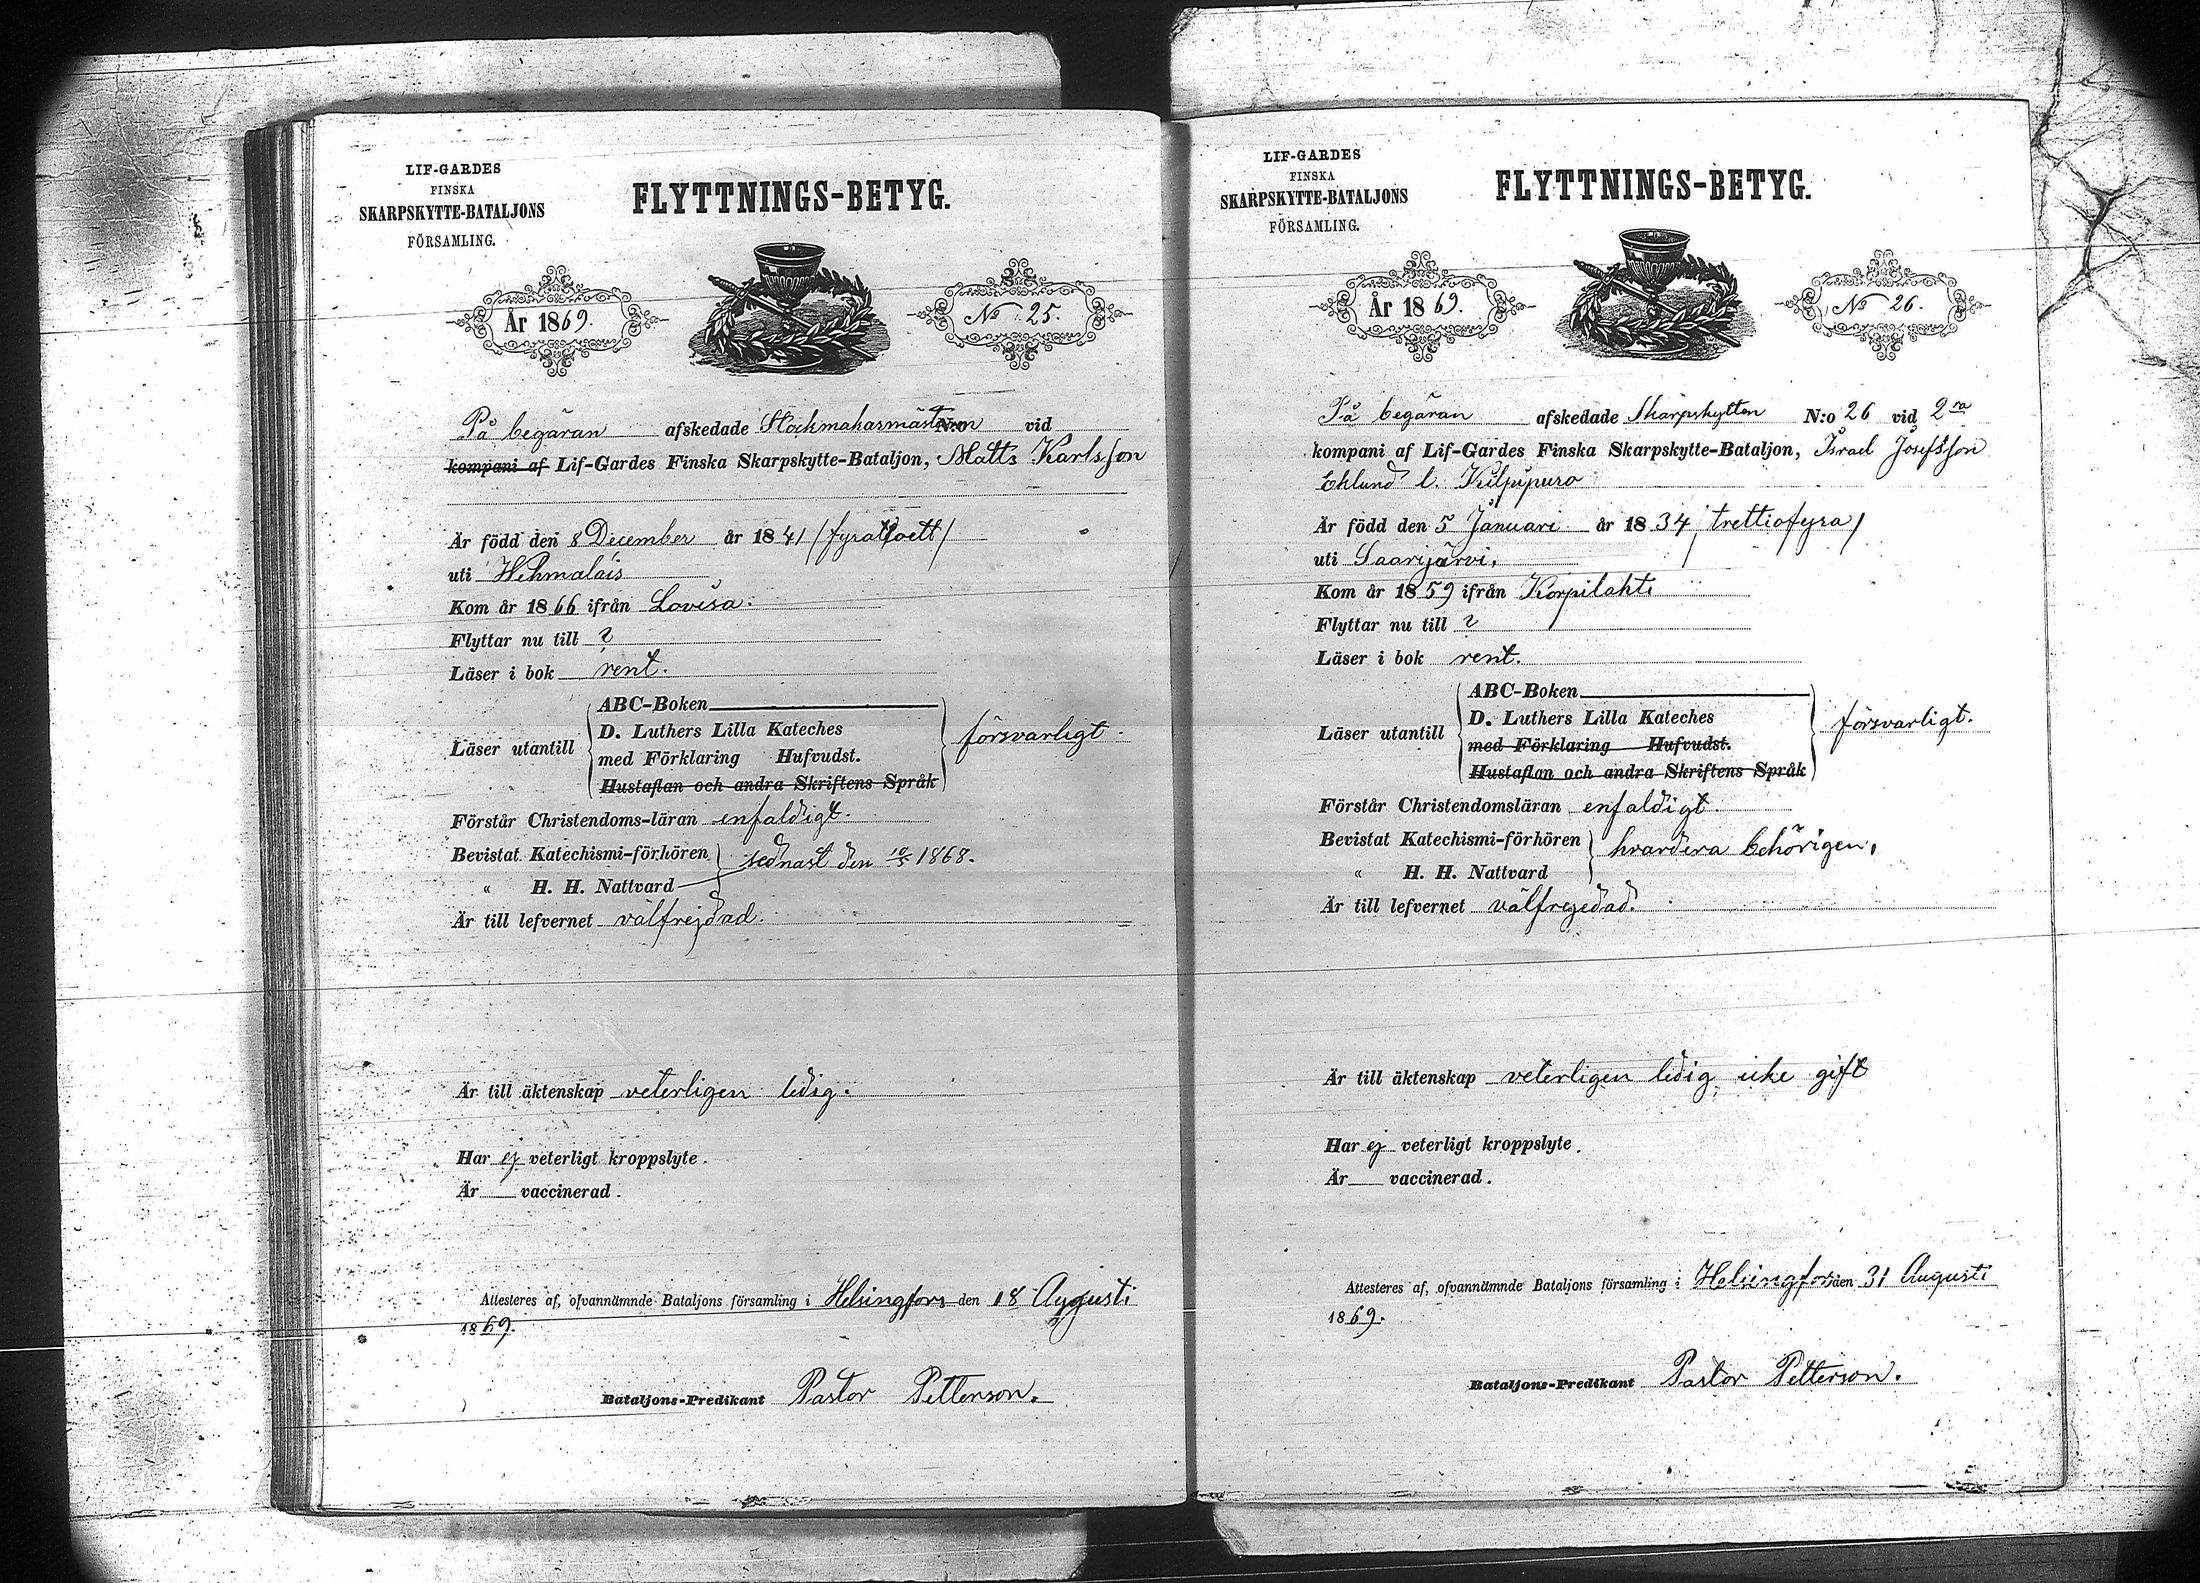 LIF-GARDES
FINSKA
SKARPSKYTTE-BATALJONS
FÖRSAMLING.
FLYTTNINGS-BETYG.
År 1869.
No 25.
På begäran afskedade Stockmakarmästaren N:o vid
kompani af Lif-Gardes Finska Skarpskytte-Bataljon, Matts Karlsson
Är född den 8 December år 1841 /fyratioett/
uti
Kom år 1866 ifrån Lovisa.
Flyttar nu till ?
Läser i bok rent.
Läser utantill
ABC-Boken
D. Luthers Lilla Kateches
med Förklaring Hufvudst.
Hustaflan och andra Skriftens Språk
försvarligt.
Förstår Christendoms-läran enfaldigt.
Bevistat Katechismi-förhören
" H. H. Nattvard
sednast den 10/5 1868.
Är till lefvernet välfrejdad.
Är till äktenskap veterligen ledig.
Har ej veterligt kroppslyte.
Är vaccinerad.
Attesteres af, ofvannämnde Bataljons församling i Helsingfors den 18 Augusti
1869.
Bataljons-Predikant Pastor Petterson.
LIF-GARDES
FINSKA
SKARPSKYTTE-BATALJONS
FÖRSAMLING.
FLYTTNINGS-BETYG.
År 1869.
No 26.
På begäran afskedade Skarpskytten N:o 26 vid 2ra
kompani af Lif-Gardes Finska Skarpskytte-Bataljon, Israel Josefsson
Eklund l. Kuljupuro
Är född den 5 Januari år 1834 /trettiofyra/
uti Saarijärvi,
Kom år 1859 ifrån Korpilahti
Flyttar nu till ?
Läser i bok rent.
Läser utantill
ABC-Boken
D. Luthers Lilla Kateches
med Förklaring Hufvudst.
Hustaflan och andra Skriftens Språk
försvarligt.
Förstår Christendomsläran enfaldigt.
Bevistat Katechismi-förhören
" H. H. Nattvard
hvardera behörigen,
Är till lefvernet välfrejdad.
Är till äktenskap veterligen ledig, icke gift
Har ej veterligt kroppslyte.
Är vaccinerad.
Attesteres af, ofvannämnde Bataljons församling i Helsingfors den 31 Augusti
1869.
Bataljons-Predikant Pastor Petterson.